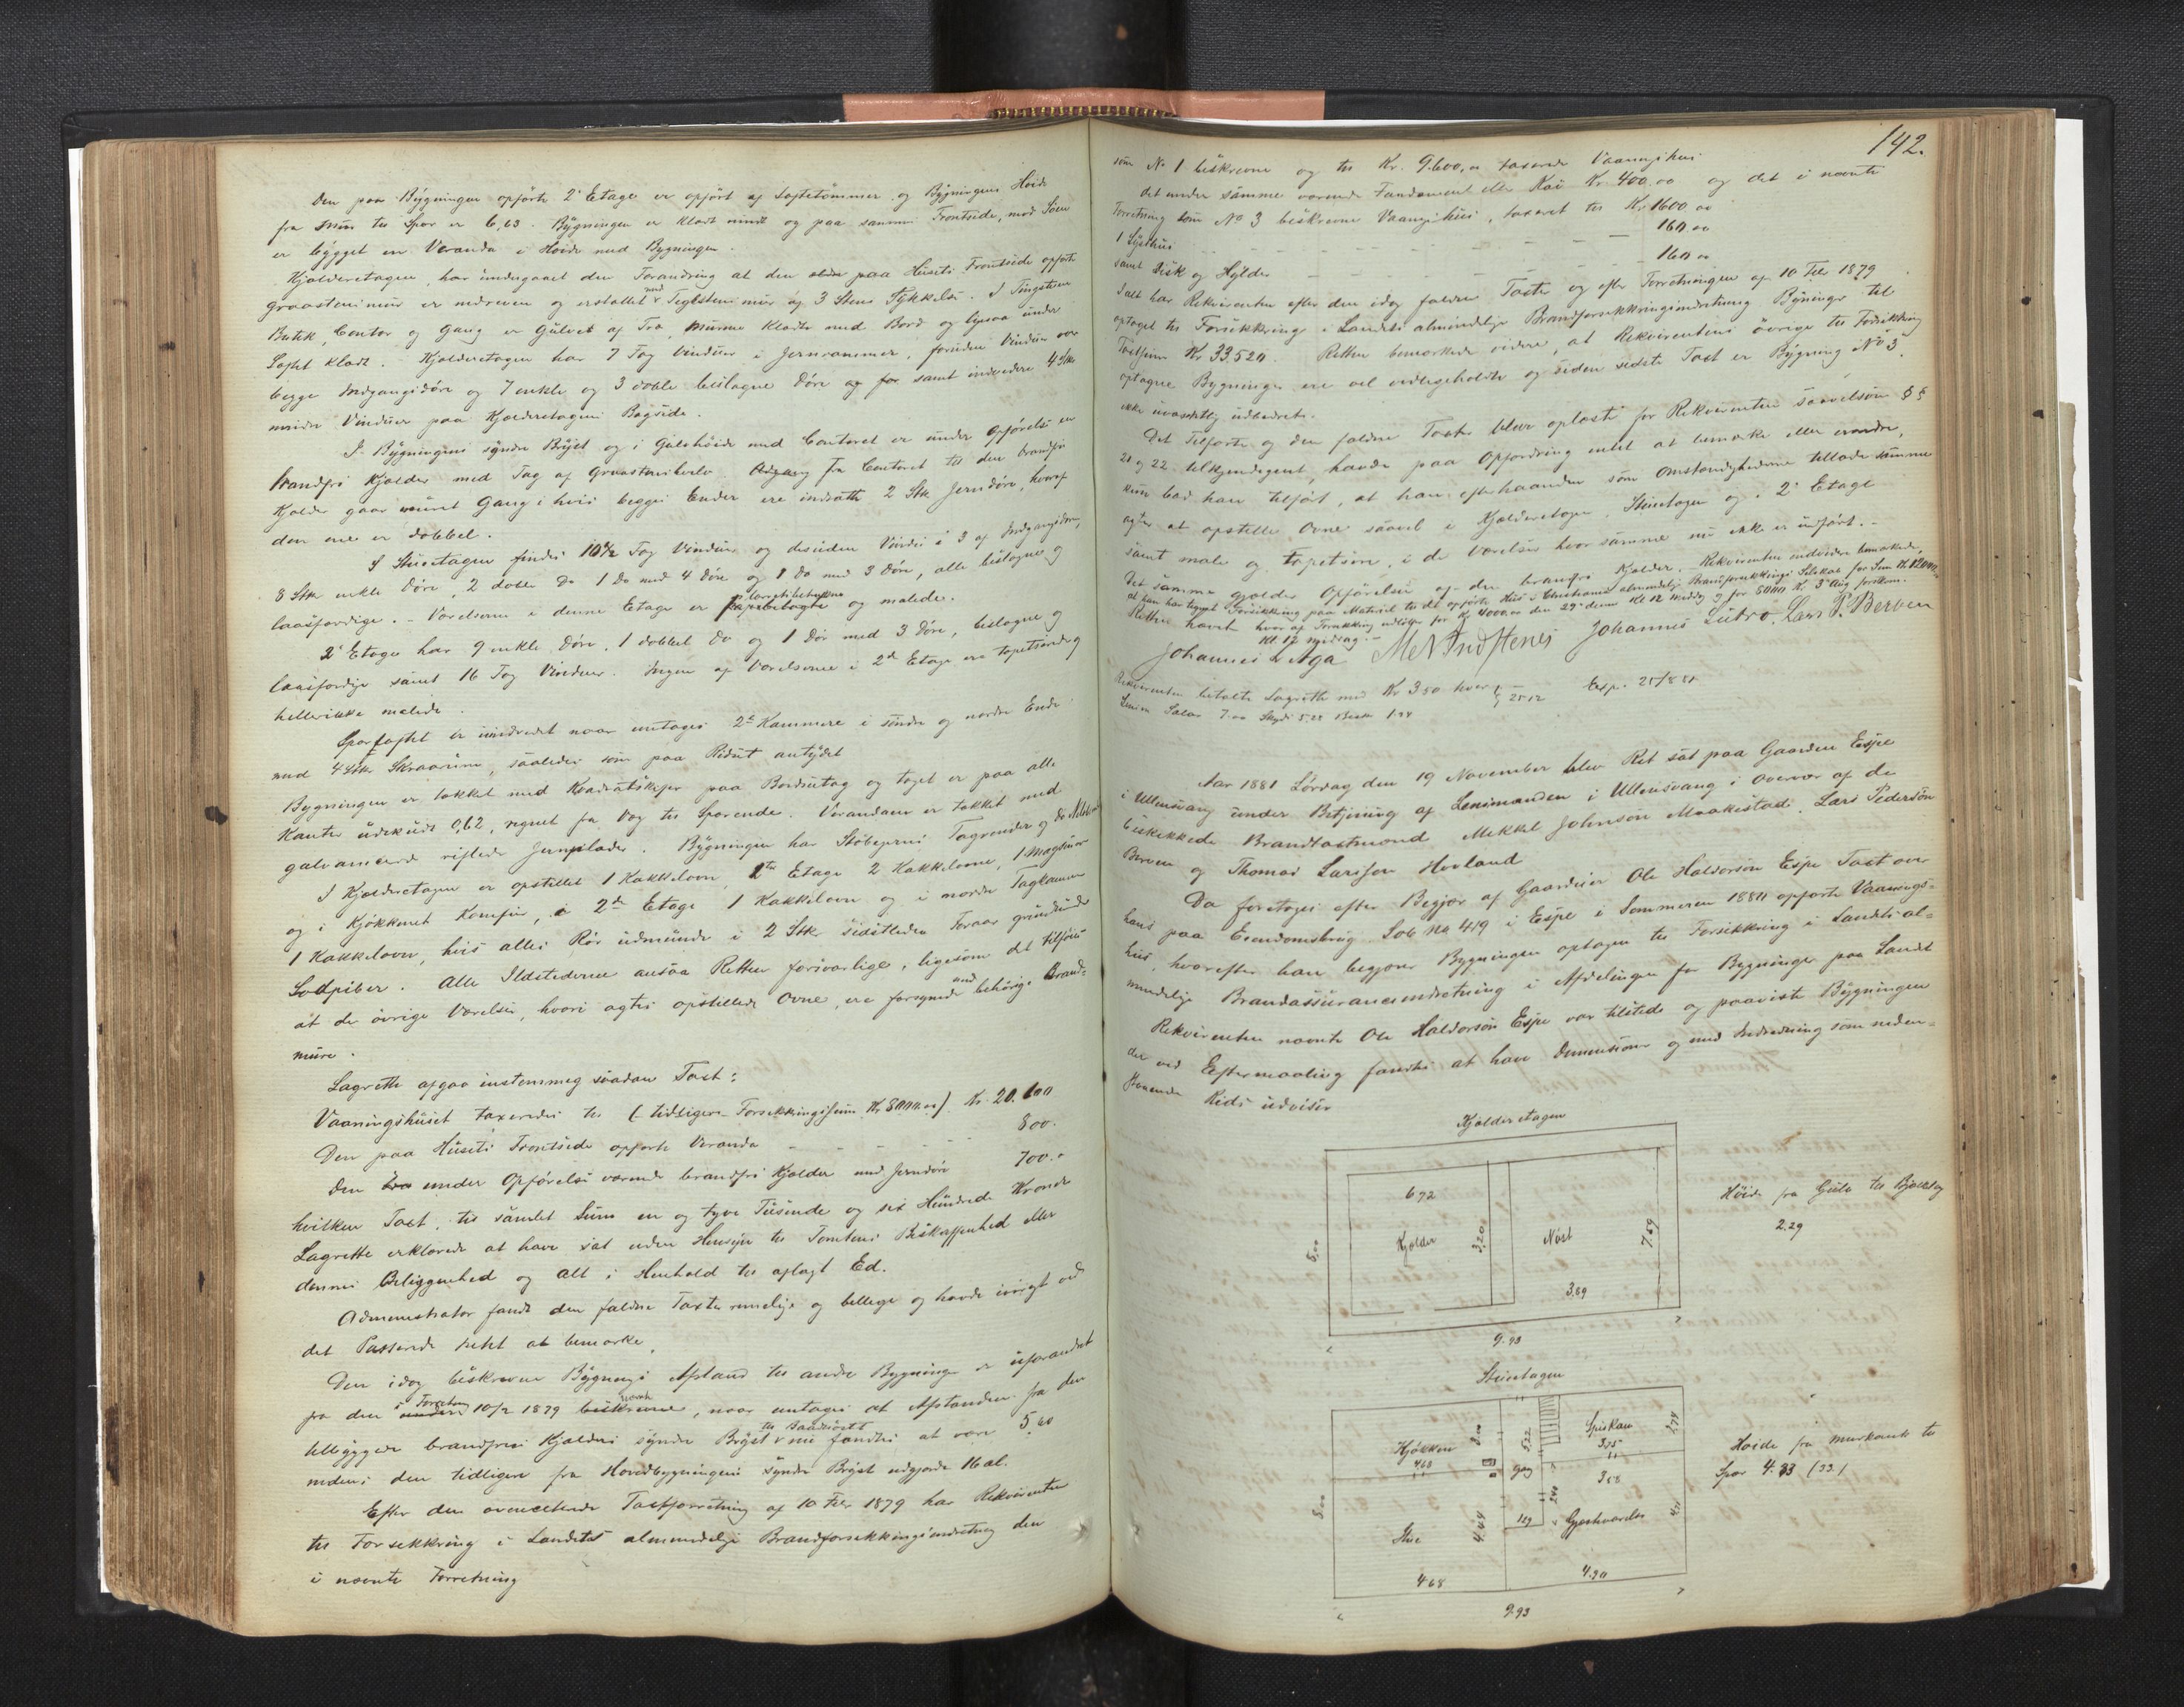 Den paa Bygningen opførte 2 Etage er opført af Loftetømmer og Bygningens Høide
fra Muur til Spor er 6,63. Bygningen er klædt rundt og paa samme Frontside, mod Søen
er bygget en Veranda i Høide med Bygningen.
Kjælderetagen, har undergaaet den Forandring at den paa Husets Frontside opførte
Graasteensmur er nedreven og erstattet med Teglsteens mur af 3 Steens Tykkelse. I
Butik, Contor og Gang er Gulvet af Træ, Murene klædte med Bord og ligesaa under
Loftet klædt. Kjælderetagen har 7 Fag Vinduer i Jernrammer, foruden Vinduer over
begge Indgangsdøre og 7 enkle og 3 doble beslagne Døre samt indvedere 4 Stk
mindre Vinduer paa Kjælderetagens Bagside.
I Bygningens syndre Bryst og i Gulvhøide med Contoret er under Opførelse en
brandfri Kjælder med Tag af Graasteenshvelv. Adgang fra Contoret til den brandfri
Kjælder gaar muret Gang i hvis begge Ender ere indsatte 2 Stk Jerndøre, hvoraf
den ene er dobbel.
I Stueetagen findes 10½ Fag Vinduer og desuden Vindu i 3 af Indgangsdørene,
8 Stk enkle Døre, 2 doble Do 1 Do med 4 Døre og 1 Do med 3 Døre, alle beslagne og
laasfærdige. - Værelserne i denne Etage er og malede.
2 Etage har 9 enkle Døre, 1 dobbel Do og 1 Dør med 3 Døre, beslagne og
laasfærdige samt 16 Fag Vinduer. Ingen af Værelserne i 2den Etage ere tapetserede og
hellerikke malede.
Sparloftet er uindredet naar untages 2de Kammere i søndre og nordre Ende
med 4 Stk Skraarum, saaledes som paa Ridset antydet
Bygningen er tækket med Kvadratskifer paa Bordsutag og taget er paa alle
Kanter udskudt 0,62, regnet fra Væg til Sparende. Verandaen er tækket med
galvaniserede riflede Jernplader. Bygningen har Støbejerns Tagrender og do Nedløb
I Kjælderetagen er opstillet 1 Kakkelovn, 1ste Etage 2 Kakkelovne, 1 Magsinor
og i Kjøkkenet Komfur, i 2den Etage 1 Kakkelovn og i nordre Tagkammer
1 Kakkelovn, hvis alles Rør udmunde i 2 Stk sidstleden Foraar grundmurede
Sodpiber. Alle Ildstederne ansaa Retten forsvarlige, ligesom det tilføies
at de øvrige Værelser, hvori agtes opstillede Ovne, ere forsynede med behørige Brand-
mure.
Lagrette afgav instemmeg saadan Taxt:
Vaaningshuset taxeredes til (tidligere Forsikkringssum Kr 8000.00) Kr. 20.100
Den paa Husets Frontside opførte Veranda - - - - - 800.
Den under Opførelse værende brandfri Kjælder med Jerndøre 700.
hvilken Taxt, til samlet Sum en og tyve Tusinde og sex Hundrede Kroner
Lagrette erklærede at have sat uden Hensyn til Tomtens Beskaffenhed eller
dennes Beliggenhed og alt i Henhold til aflagt Ed.
Administrator fandt den faldne Taxter rimelige og billege og havde iøvrigt ved
det Passerede intet at bemærke.
Den idag beskrevne Bygnings Afstand til andre Bygninger er uforandret
fra den i Forretning 10/2 1879 nævnte, naar untages at Afstanden fra den
tilbyggede brandfrie Kjælders syndre Bryst til Baadnøstet nu fandtes at være 5.60
medens den tidligere fra Hovedbygningens syndre Bryst udgjorde 16 al.
Efter den ovenciterede Taxtforretning af 10 Febr 1879 har Rekvirenten
til Forsekkring i Landets almindelige Brandforsekkringsindretning den
i nævnte Forretning
142.
som No 1 beskrevne og til Kr. 9.600,00 taxerede Vaaningshus
det under samme værende Fundament eller Kai Kr. 400.00 og det i nævnte
Forretning som No 3 beskrevne Vaaningshus, taxeret til Kr 1600.00
1 Lysthus - - - - - 160.00
samt Disk og Hylder - - - - - 160.00
Ialt har Rekvirenten efter den idag faldne Taxter og efter Forretningen af 10 Febr 1879
optaget til Forsikkring i Landets almindelige Brandforsekkringsindretning Bygninger til
Taxtsum Kr 33.520. Retten bemærkede videre, at Rekvirentens øvrige til Forsikkring
optagne Bygninger ere vel vedligeholdte og siden sidste Taxt er Bygning No 5
ikke uvæsentlig udbedret.
Det Tilførte og den faldne Taxt blev oplæst for Rekvirenten saavelsom §§
21 og 22 tilkjendegivet, havde paa Opfordring intet at bemærke eller erindre,
kun bad han tilført, at han efterhaanden som Omstændighederne tillade samme
agter at opstille Ovne saavel i Kjælderetagen, Stueetagen og i 2 Etage
samt male og tapetsere, i de Værelser hvor samme nu ikke er udført. -
Det samme gjælder Opførelse af den brandfri Kjælder. - Rekvirenten endvidere bemærkede,
at han har tegnet Forsikkring paa Materiel til det opførte Hus i Christiania almindelige Brandforsekkrings Selskab for Sum Kr 12000
hvor af Forsekkring udløber for Kr 4000.00 den 29de dennes Kl 12 Middag og for 8000 Kr. 3 Aug førstkom.
Kl. 12 middag. -
Retten hævet
Johannes L Aga Johannes Lutro. Lars P. Berven
Rekvirenten betalte Lagrette med Kr 3.50 hver
Exp. 25/8 81
Aar 1881 Lørdag den 19 November blev Ret sat paa Gaarden Espe
i Ullensvang under Betjening af Lensmanden i Ullensvang i Overvær af de
beskikkede Brandtaxtmænd Mikkel Johnsen Maakestad, Lars Pedersøn
Berven og Thomas Larssøn Hovland
Da foretoges efter Begjær af Gaardeier Ole Haldorsøn Espe Taxt over
hans paa Eiendomsbrug Løb No 419 i Espe i Sommeren 1880 opførte Vaanings-
hus, hvorefter han begjærer Bygningen optagen til Forsekkring i Landets al-
mindelige Brandassuranceindretning i Afdelingen for Bygninger paa Landet
Rekvirenten nævnte Ole Haldorsøn Espe var tilstede og paaviste Bygningen
der ved Eftermaaling fandtes at have Dimensioner og med Indredning som neden-
staaende Rids udviser
Kjælderetagen
6.72
8.00
Kjælder
3.20
Nøst
7.69
3.89
9.93
Høide fra Gulv til Bjælkelag
2.29
Stueetagen
Kjøkken
4.68
3.00
5.22
Gang
Spiskam
3.35
2.74
3.58
8.00
Stue
4.44
129
2.40
Gjæstværelse
4.71
4.68
4.90
9.93
Høide fra Murkant til
Spor 4.33 (33)